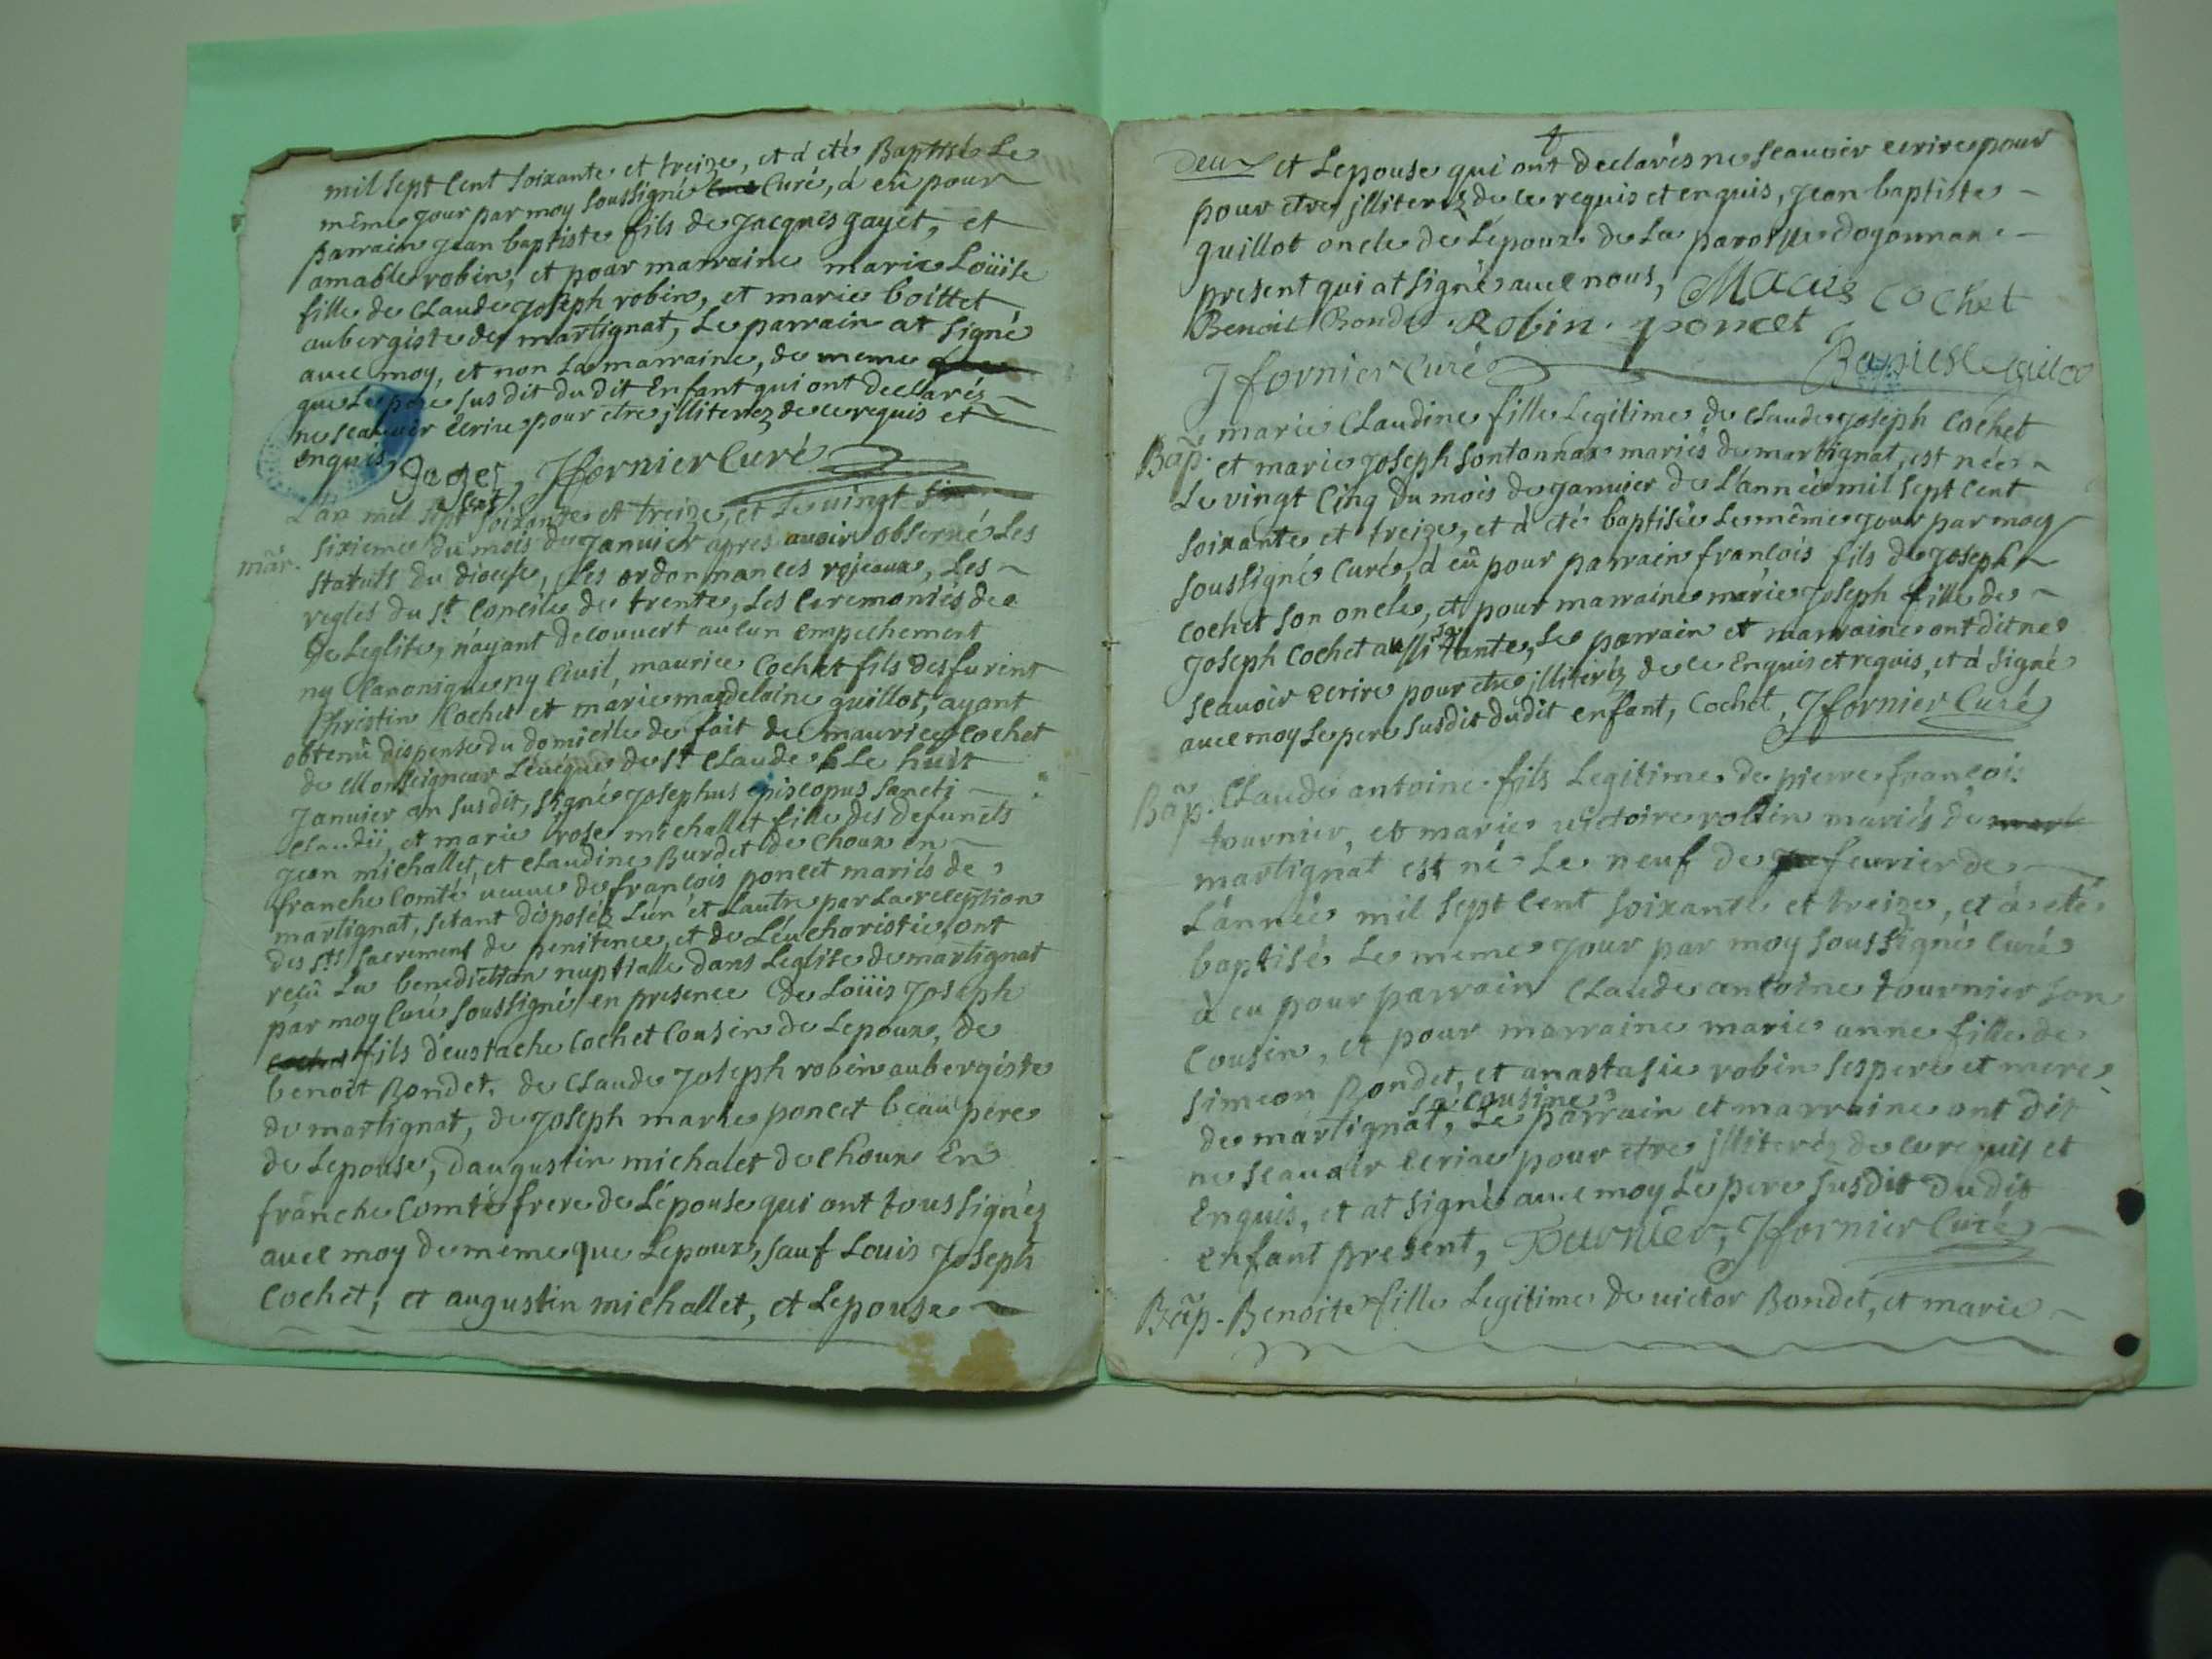 mil sept cent soixante et treize, et à été Baptisé Le
même jour par moy soussigné Curé, à eû pour
parrain jean baptiste fils de jacques gayet, et
amable robin, et pour marraine marie Loüise
fille de Claude joseph robin, et marie boittet
aubergiste de martignat, Le parrain at signé
avec moy, et non La marraine, de meme
que Le pere susdit du dit Enfant qui ont declarés
ne sçauoir écrire pour etre jlliterez de ce requis et
enquis, Jfornier Curé
L'an mil sept cent soixante et treize, et Le vingt
mār. sixieme du mois de janvier apres avoir observé Les
statuts du diocese, Les ordonnances rojeaux, Les
regles du st. Concile de trente, Les Ceremonies de
De Leglise, n'ayant decouvert aucun empechement
ny Canonique ny Civil, maurice Cochet fils desfurint
Christin Cochet et marie magdelaine guillot, ayant
obtenû dispense du domicile de fait de maurice Cochet
de Monseigneur Lévêque de st Claude Le huit
Janvier an susdit, signé josephus episcopus sancti
Claudii, et marie rose michallet fille des defuncts
jean michallet, et Claudine Burdet de Choux en
franche Comté veuve de françois poncet mariés de
martignat, setant disposéz Lún et Lautre par La reception
des sts. sacrement de penitence, et de Léucharistie, ont
reçû La benediction nuptialle dans Leglise de martignat
par moy Curé soussigné en presence de Loüis joseph
cochet fils d'eustache Cochet Cousin de Lepoux, de
benoit Bondet, de Claude joseph robin aubergiste
de martignat, de joseph marie poncet beau pere
de Lepouse, daugustin michalet de Choux En
franche Comté frere de Lépouse qui ont tous signéz
avec moy de meme que Lepoux, sauf Louis joseph
Cochet, et augustin michallet, et Lepouse
Deux et Lepouse qui ont declarés ne sçauoir ecrire pour
pour etre jlliterez de ce requis et enquis, jean baptiste
guillot oncle de Lépoux de La paroisse Doyonnax
present qui at signé avec nous, Cochet
Benoit Bondet Robin poncet
Jfornier Curé Baptiste
marie Claudine fille Legitime de Claude joseph Cochet
Bāp. et marie joseph sontonnax mariés de martignat, est née
Le vingt Cinq du mois de janvier de L'année mil sept Cent
soixante et treize, et à été baptisée Le même jour par moy
soussigné Curé, à eû pour parrain françois fils de joseph
Cochet son oncle, et pour marraine marie joseph fille de
joseph Cochet aussi sa tante, Le parrain et marraine ont dit ne
sçauoir ecrire pour etre jlliteréz de ce Enquis et requis, et à signé
avec moy Le pere susdit du dit enfant, Cochet, Jfornier Curé
Bāp. Claude antoine fils Legitime de pierre françois
tournier, et marie victoire robin mariés de
martignat est né Le neuf de fevrier de
L'année mil sept Cent soixante et treize, et à eté
baptisé Le meme jour par moy soussigné Curé
à eu pour parrain Claude antoine tournier son
Cousin, et pour marraine marie anne fille de
simeon Bondet, et anastasie robin ses pere et mere
de martignat, sa cousine Le parrain et marraine ont dit
ne sçauoir ecrire pour etre jlliteréz de ce requis et
Enquis, et at signé avec moy Le pere susdit du dit
enfant present, Tournier, Jfornier Curé
Bāp. Benoite fille Legitime de victor Bondet, et marie